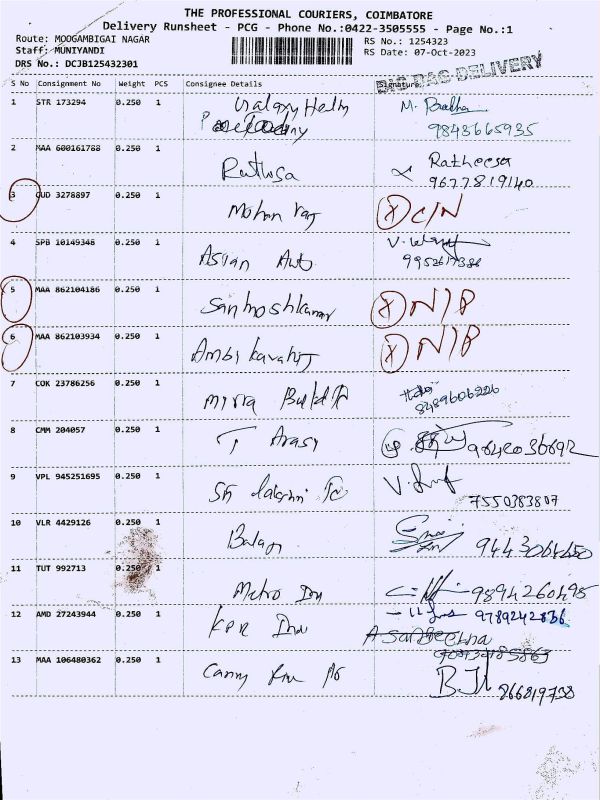 THE PROFESSIONAL COURIERS, COIMBATORE
Delivery Runsheet - PCG - Phone No.:0422-3505555 - Page No.:1
Route: MOOGAMBIGAI NAGAR
RS No.: 1254323
Staff: MUNIYANDI
RS Date: 07-Oct-2023
DRS No.: DCJB125432301
BIG BAG DELIVERY
S No Consignment No Weight PCS Consignee Details Signature
1 STR 173294 0.250 1 Galaxy Helm M. Radha
9843665935
2 MAA 600161788 0.250 1 Ruthosa Ratheesa
9677819140
3 GUD 3278897 0.250 1 Mohan raj X C/N
4 SPB 10149348 0.250 1 Asian Auto
9952617386
5 MAA 862104186 0.250 1 Santhoshkumar X N/P
6 MAA 862103934 0.250 1 Ambikavathy X N/P
7 COK 23786256 0.250 1 Mirra Build
8489606226
8 CMM 204057 0.250 1 T Arasy 9642036692
9 VPL 945251695 0.250 1 Sri Lakshmi
7550383807
10 VLR 4429126 0.250 1 Balan 9443064650
11 TUT 992713 0.250 1 Metro Inn 9894260495
12 AMD 27243944 0.250 1 KPR Inn 9789242836
13 MAA 106480362 0.250 1 Canny 866819738